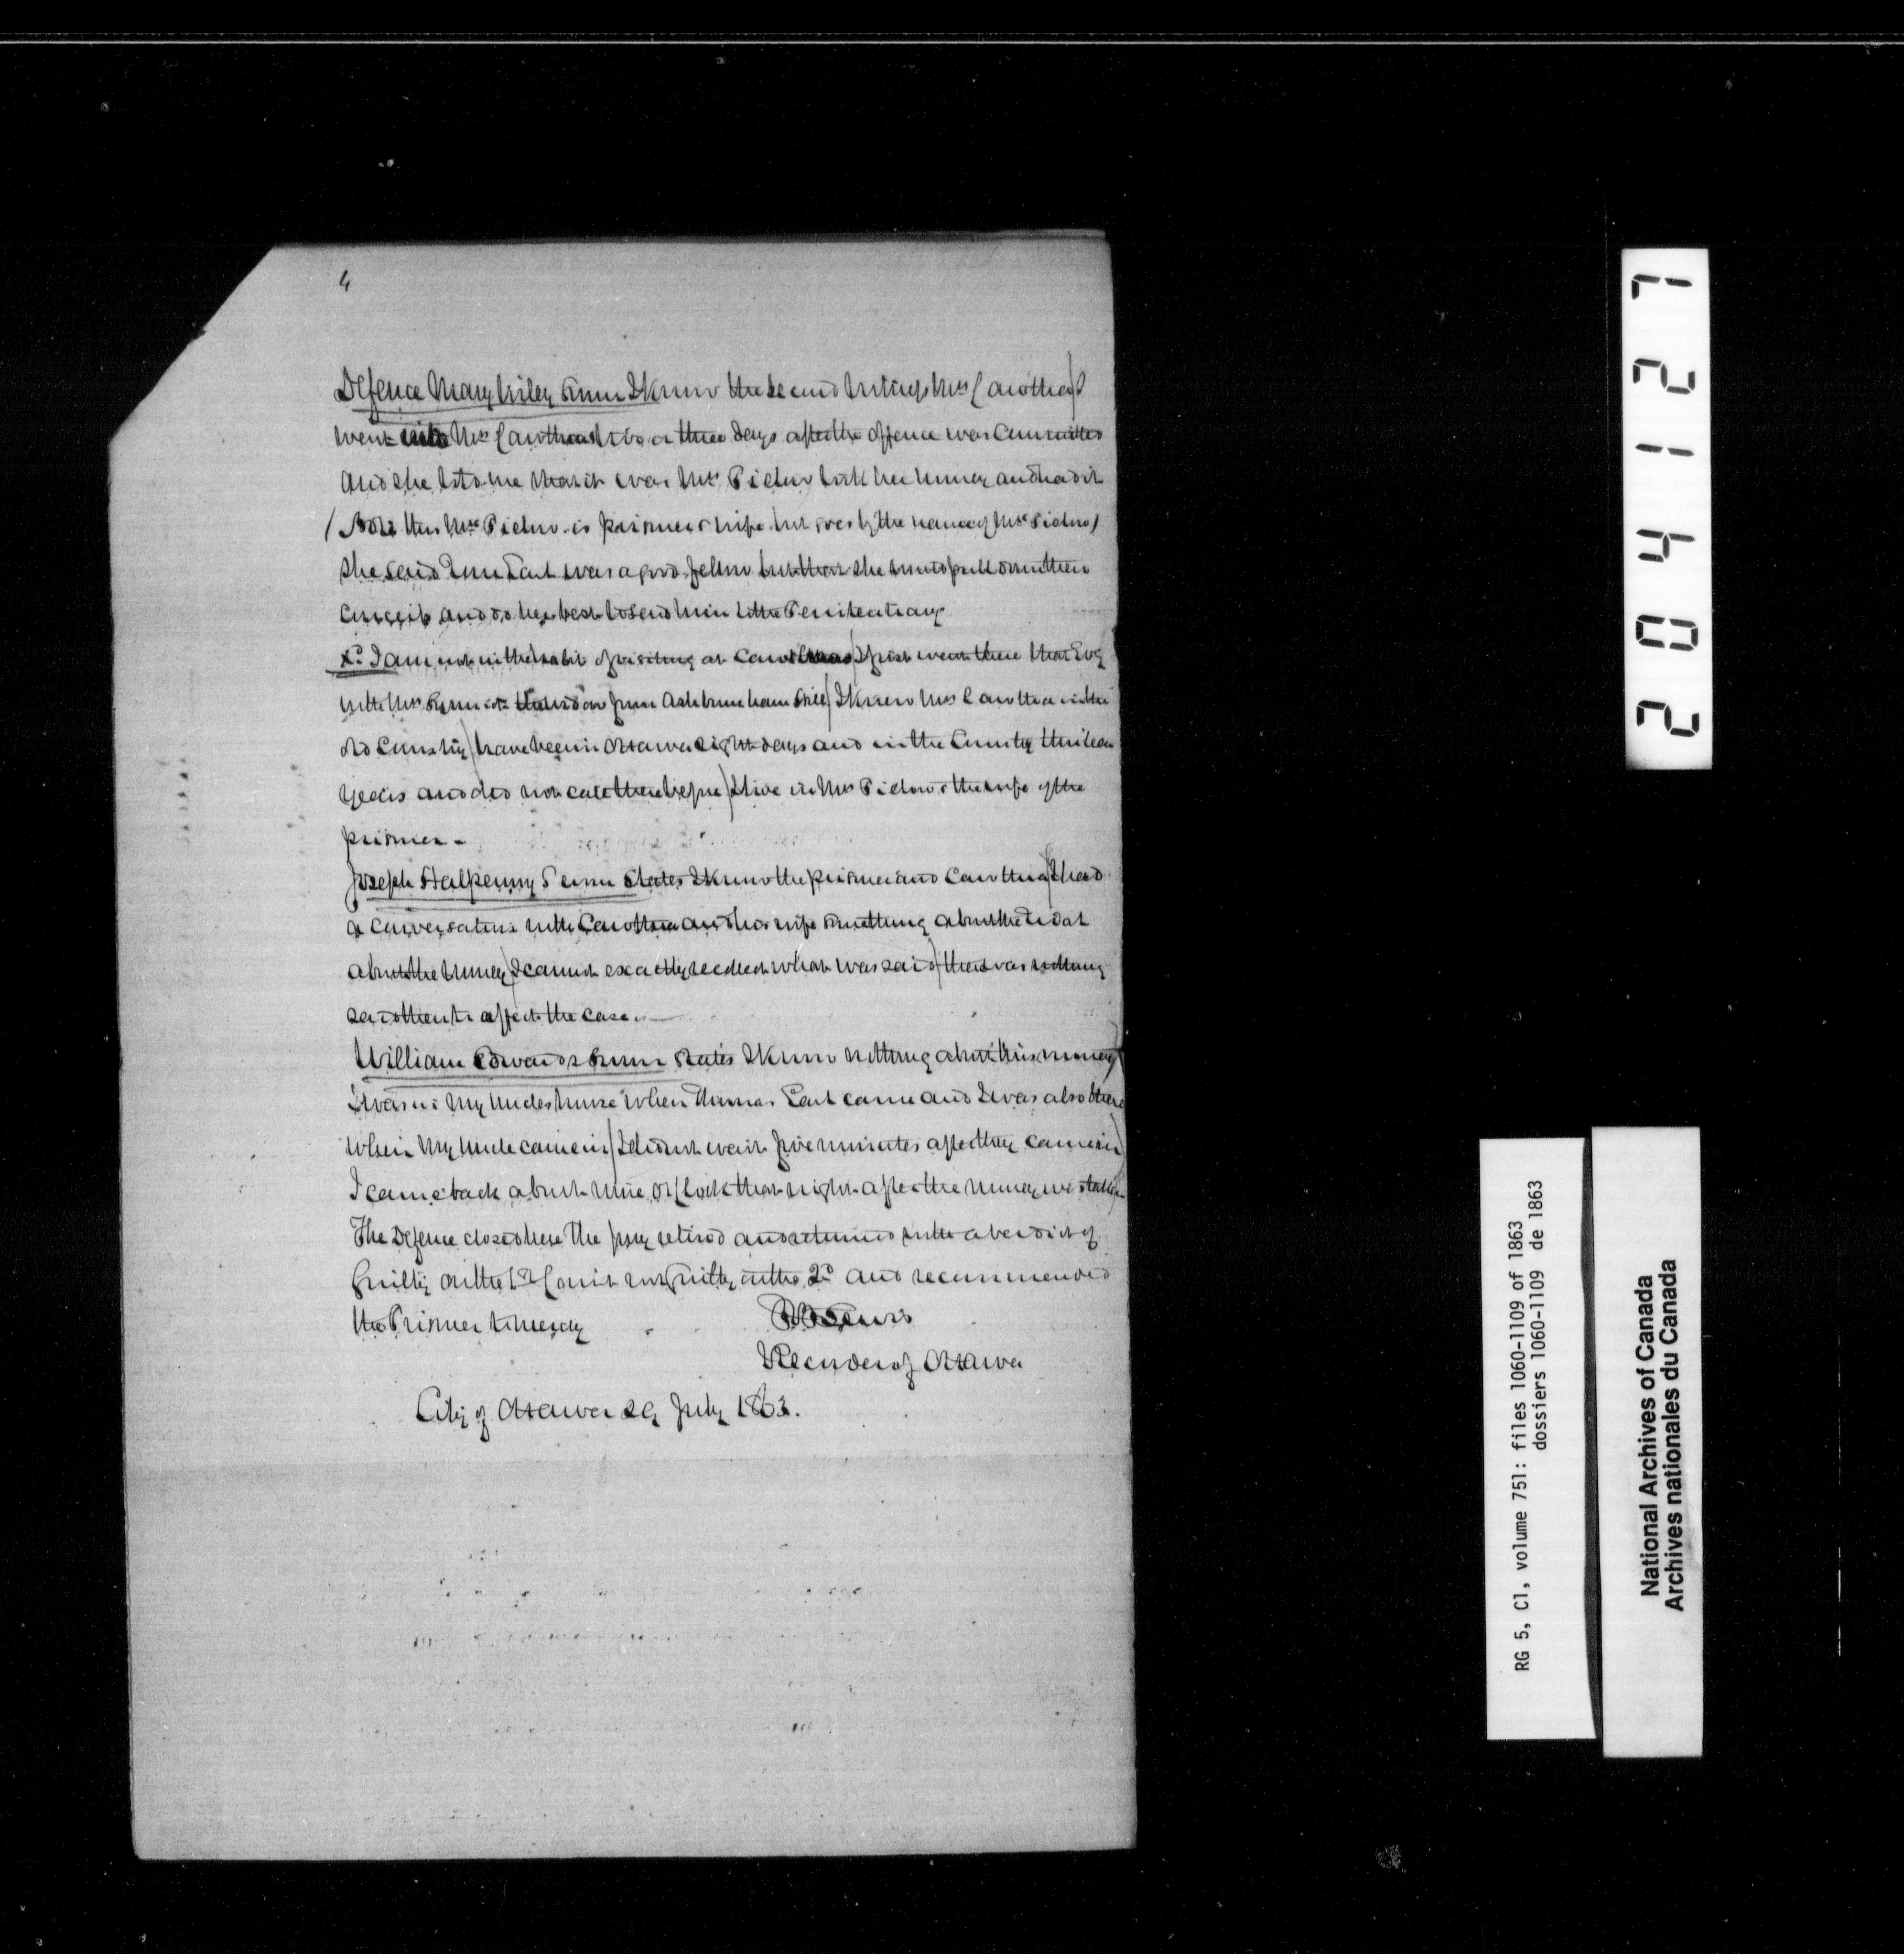 4
Defence Mary Wiley Sworn I know the second Witness Mrs Carothers) I
went into Mrs Carothers two or three days after the offence was Committed
and she told me that it was Mrs Pichw took her money and had it
(Note this Mrs Pichw is prisoners wife but goes by the name of Mrs Pichw)
She said Tom Earl was a good fellow but that she would pull down their
conceit and do her best to send him to the Penitentiary
Xd I am not in the habit of visiting at Carothers) I first went there that Evg
with Mrs from Ashburnham Hill) I knew Mrs Carothers in the
old Country) have been in Ottawa eight days and in the Country thirteen
years and did not call there before) I live in Mrs Pichws the wife of the
prisoner -
Joseph Halpenny Sworn States I know the prisoner and Carothers) I had
a conversation with Carothers and his wife something about the
about the money) I cannot exactly recollect what was said) there was nothing
said then to affect the case. —
William Edwards Sworn States I know nothing about this money)
I was in my Uncles house when Thomas Earl came and I was also there
when my Uncle came in) I did not wait five minutes after they came in)
I came back about nine O'Clock that night after the money was taken
The Defence closed here The Jury retired and returned with a verdict of
Guilty on the 1st Count not Guilty on the 2d and recommended
the Prisoner to mercy
Lewis
Recorder of Ottawa
City of Ottawa 29 July 1863.
204127
RG 5, C1, volume 751: files 1060-1109 of 1863
dossiers 1060-1109 de 1863
National Archives of Canada
Archives nationales du Canada